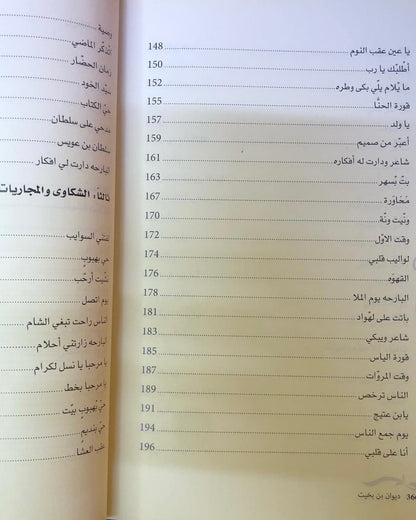 يا عين عقب النوم 148
أطلبك يا رب 150
ما يلام يلّي بكى وطره 152
فورة الحنّا 155
يا ولد 157
أعبّر من صميم 159
شاعر ودارت له أفكاره 161
بتّ بسهر 163
محَاوَرة 167
ونّيت ونّة 170
وقت الاوّل 172
لواليب قلبي 174
القهوَه 176
البارحه يوم الملا 178
باتت على لهْواد 181
شاعر ويبكي 183
فورة الياس 185
وقت المروّات 187
الناس ترخص 189
يابن عتيج 191
يوم جمع الناس 194
أنا على قلبي 196
ديوان بن بخيت
وصية
أتذكّر الماضي
زمان الحضّار
سيّد الخود
حيّ الكتاب
مدحي على سلطان
سلطان بن عويس
البارحه دارت لي افكار
ثالثاً، الشكاوى والمجاريات
حي بهبوب
يوم اتصل
الناس راحت تبغي الشام
البارحه زارتني أحلام
يا مرحبا يا نسل لكرام
يا مرحبا بخط
حيّ بهبوب بيّت
عقب العشا